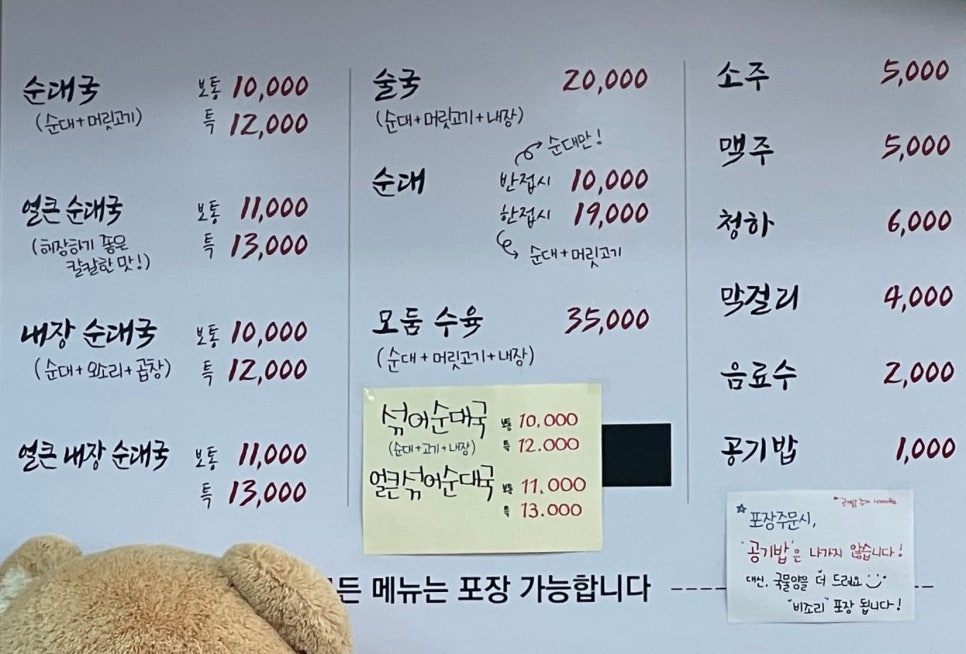 순대국 보통 10,000
(순대+머릿고기) 특 12,000
얼큰 순대국 보통 11,000
(해장하기 좋은 특 13,000
칼칼한 맛!)
내장 순대국 보통 10,000
(순대+오소리+곱창) 특 12,000
얼큰 내장 순대국 보통 11,000
특 13,000
술국 20,000
(순대+머릿고기+내장)
순대만!
순대 반접시 10,000
한접시 19,000
순대+머릿고기
모둠 수육 35,000
(순대+머릿고기+내장)
섞어순대국 보통 10.000
(순대+고기+내장) 특 12.000
얼큰섞어순대국 보통 11.000
특 13.000
소주 5,000
맥주 5,000
청하 6,000
막걸리 4,000
음료수 2,000
공기밥 1,000
포장주문시,
"공기밥"은 나가지 않습니다!
대신, 국물양을 더 드려요
"비조리" 포장 됩니다!
든 메뉴는 포장 가능합니다